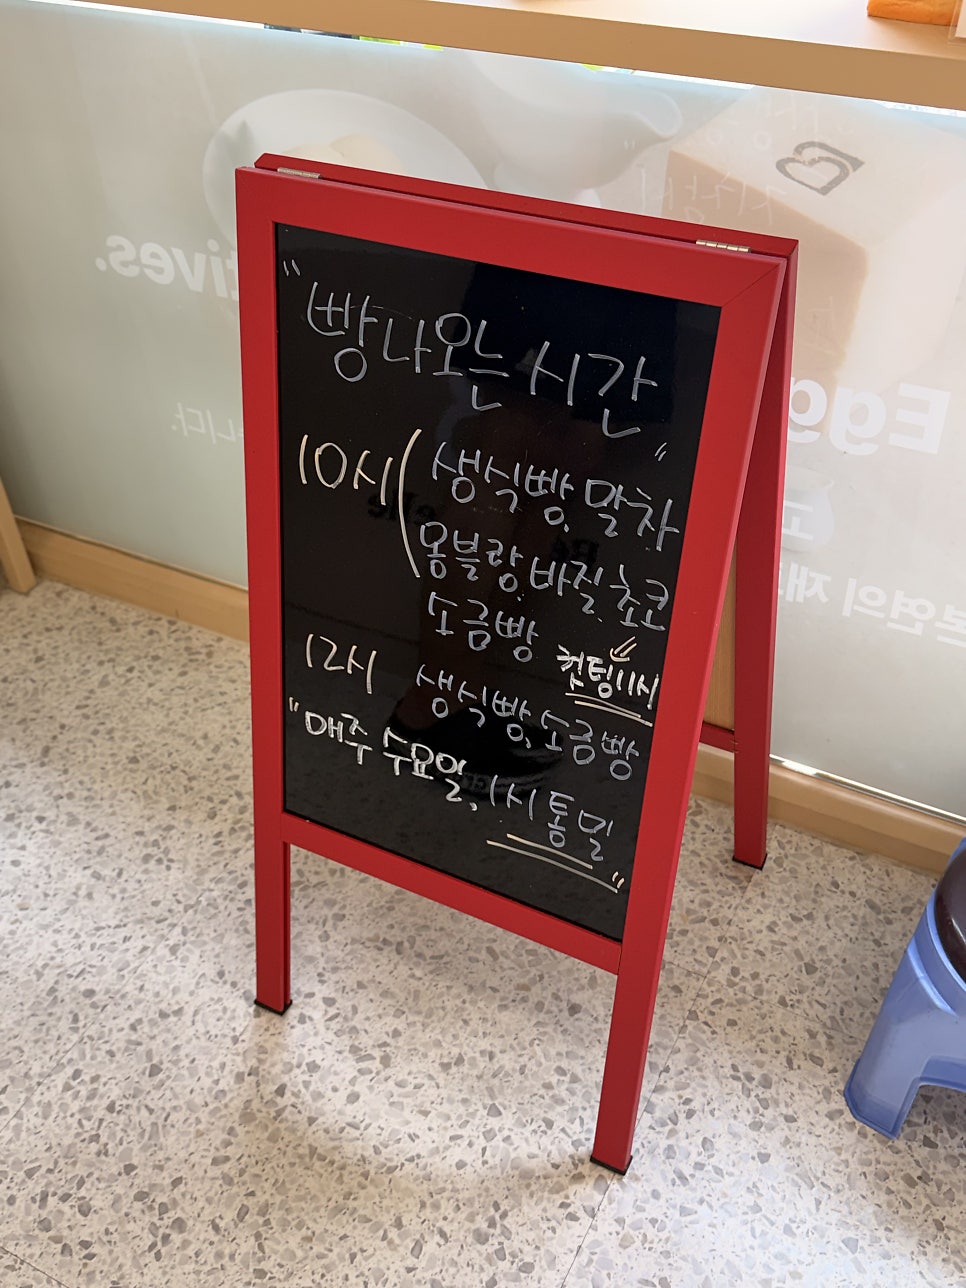 "빵나오는 시간"
10시( 생식빵, 말차
몽블랑, 바질, 초코
소금빵
컷팅11시
12시 생식빵, 소금빵
"매주 수요일, 1시 통밀"
tives.
Egg
니다.